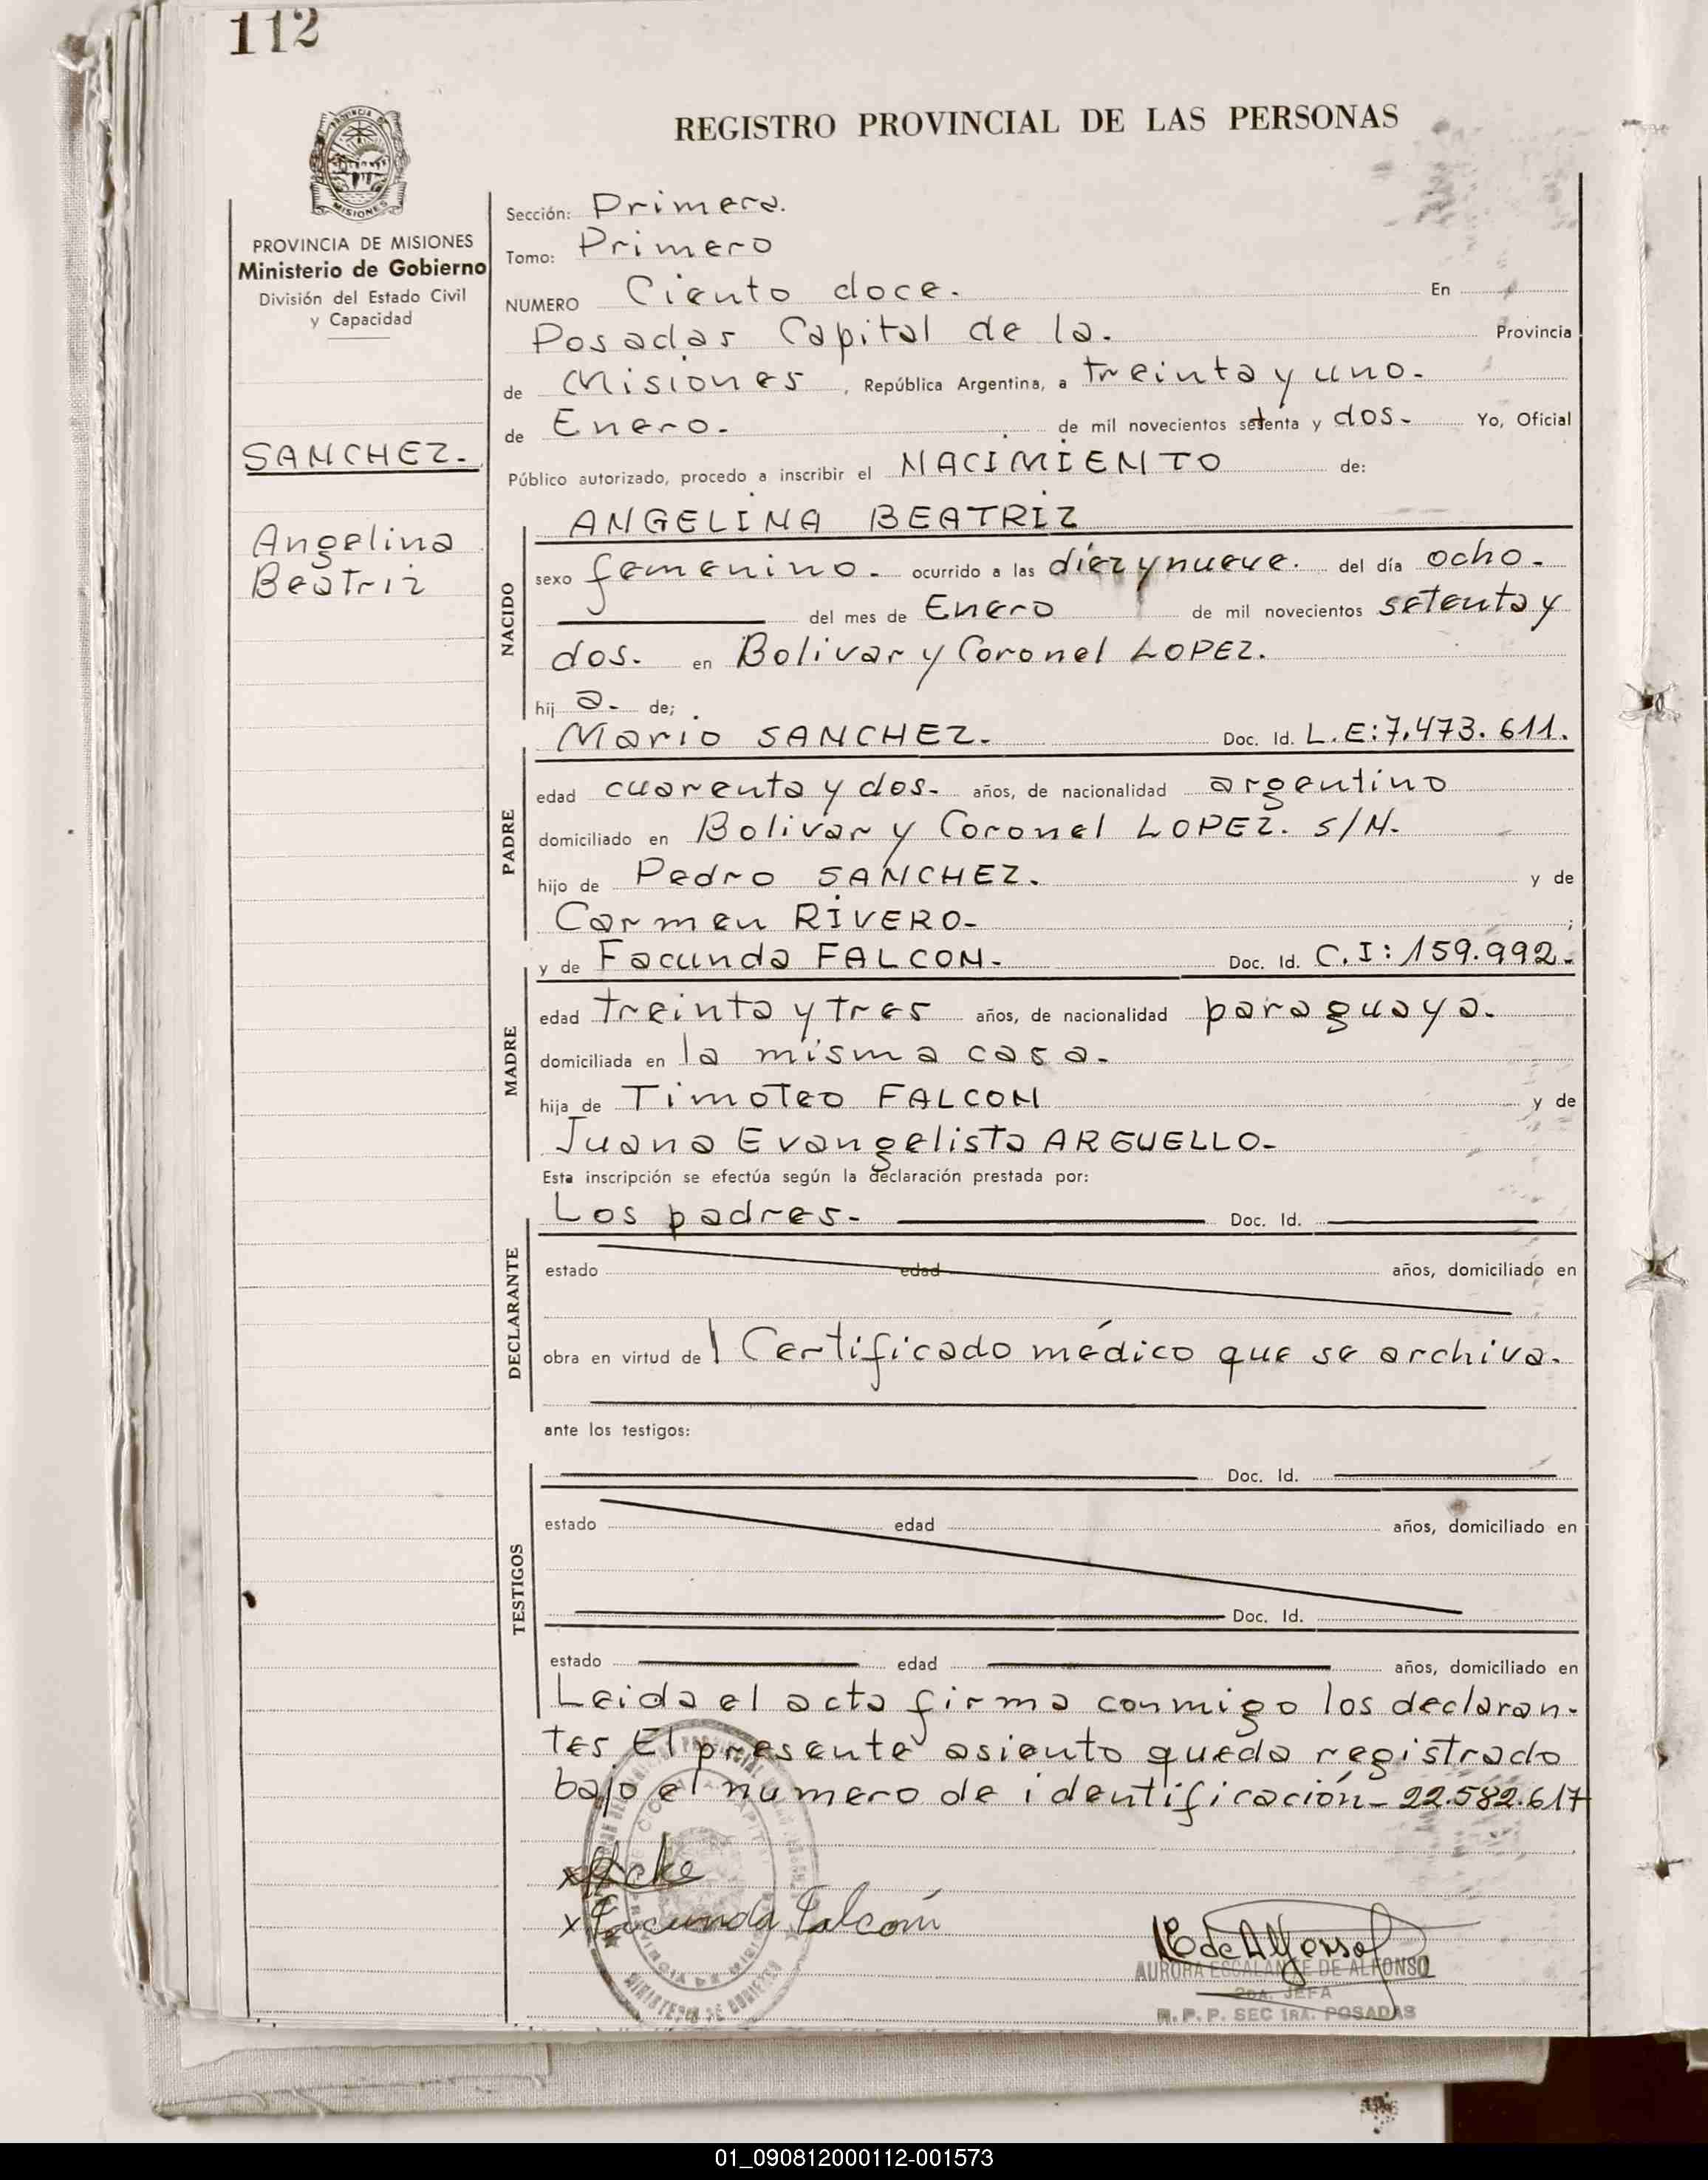 112
REGISTRO PROVINCIAL DE LAS PERSONAS
MISIONES
PROVINCIA DE MISIONES
Ministerio de Gobierno
División del Estado Civil
y Capacidad
SANCHEZ.
Angelina
Beatriz
Sección: Primera.
Tomo: Primero
NUMERO Ciento doce. En
Posadas Capital de la. Provincia
de Misiones, República Argentina, a treinta y uno.
de Enero. de mil novecientos setenta y dos. Yo, Oficial
Público autorizado, procedo a inscribir el NACIMIENTO de:
NACIDO
ANGELINA BEATRIZ
sexo femenino. ocurrido a las diez y nueve. del día ocho.
del mes de Enero de mil novecientos setenta y
dos. en Bolivar y Coronel LOPEZ.
hij a. de;
PADRE
Mario SANCHEZ. Doc. Id. L.E:7.473.611.
edad cuarenta y dos. años, de nacionalidad argentino
domiciliado en Bolivar y Coronel LOPEZ. S/N.
hijo de Pedro SANCHEZ. y de
Carmen RIVERO- ;
MADRE
y de Facunda FALCON. Doc. Id. C.I:159.992.
edad treinta y tres años, de nacionalidad paraguaya.
domiciliada en la misma casa.
hija de Timoteo FALCON y de
Juana Evangelista ARGUELLO-
Esta inscripción se efectúa según la declaración prestada por:
DECLARANTE
Los padres. Doc. Id.
estado edad años, domiciliado en
obra en virtud de 1 Certificado médico que se archiva.
ante los testigos:
TESTIGOS
Doc. Id.
estado edad años, domiciliado en
Doc. Id.
estado edad años, domiciliado en
Leida el acta firma conmigo los declaran-
tes El presente asiento queda registrado
bajo el numero de identificación- 22.582.617
x Facunda Falcon
AURORA ESCALANTE DE ALFONSO
2DA. JEFA
R.P.P. SEC 1RA. POSADAS
MINISTERIO DE GOBIERNO
01_090812000112-001573